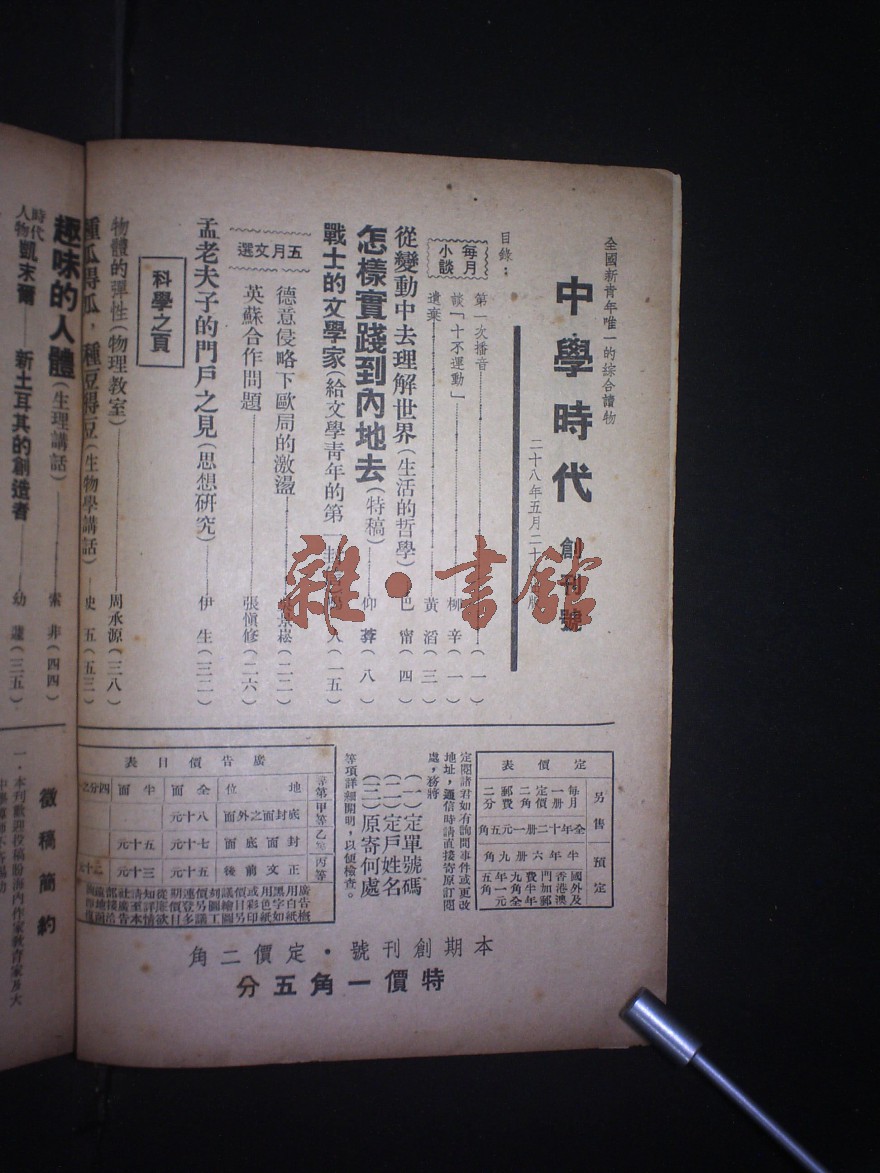 全國新青年唯一的綜合讀物
中學時代 創刊號
二十八年五月二十
目錄：
每月小談
第一次播音 柳辛（一）
談「十不運動」
遺棄 黃滔（三）
從變動中去理解世界（生活的哲學） 巴甯（四）
怎樣實踐到內地去（特稿） 仰葊（八）
戰士的文學家（給文學青年的第一封 人（一五）
五月文選
德意侵略下歐局的激盪 崧（二二）
英蘇合作問題 張愼修（二六）
孟老夫子的門戶之見（思想研究） 伊生（三二）
科學之頁
物體的彈性（物理教室） 周承源（三八）
種瓜得瓜，種豆得豆（生物學講話） 史五（五三）
趣味的人體（生理講話） 索非（四四）
時代人物 凱末爾——新土耳其的創造者 幼蓮（三五）
定價表
另售 預定
每月一冊 定價二角 郵費二分
全年十二冊一元五角
半年六冊九角
國外及香港澳門加郵費半年九角全年一元五角
定閱諸君如有詢問事件或更改
地址，通信時請直接寄原訂閱
處，務將
（一）定單號碼
（二）定戶姓名
（三）原寄何處
等項詳細開明，以便檢查。
廣告價目表
等第 地位 全面 半面 四分之
甲等 底封面之外面 八十元
乙等 封面底面 七十元 五十元
丙等 正文前後 五十元 三十元
本期創刊號・定價二角
特價一角五分
徵稿簡約
一・本刊歡迎投稿盼海內作家教育家及大
雜・書館